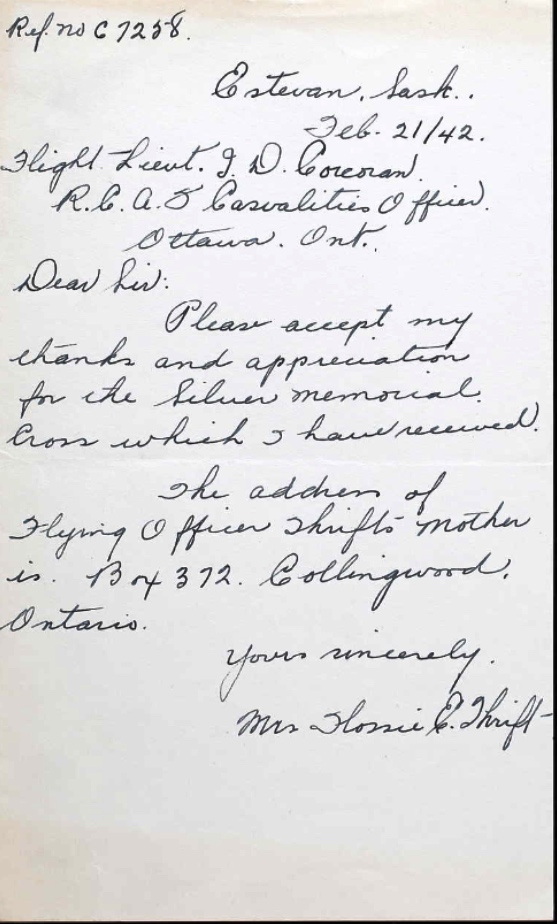 Ref. no C 7258.
Estevan, Sask..
Feb. 21/42.
Flight Lieut. J. D. Corcoran.
R.C.A.F Casualities Officer.
Ottawa. Ont.
Dear Sir:
Please accept my
thanks and appreciation
for the Silver memorial
Cross which I have received.
The address of
Flying Officer Thrifts mother
is. Box 372. Collingwood.
Ontario.
Yours sincerely.
Mrs Flossie E. Thrift